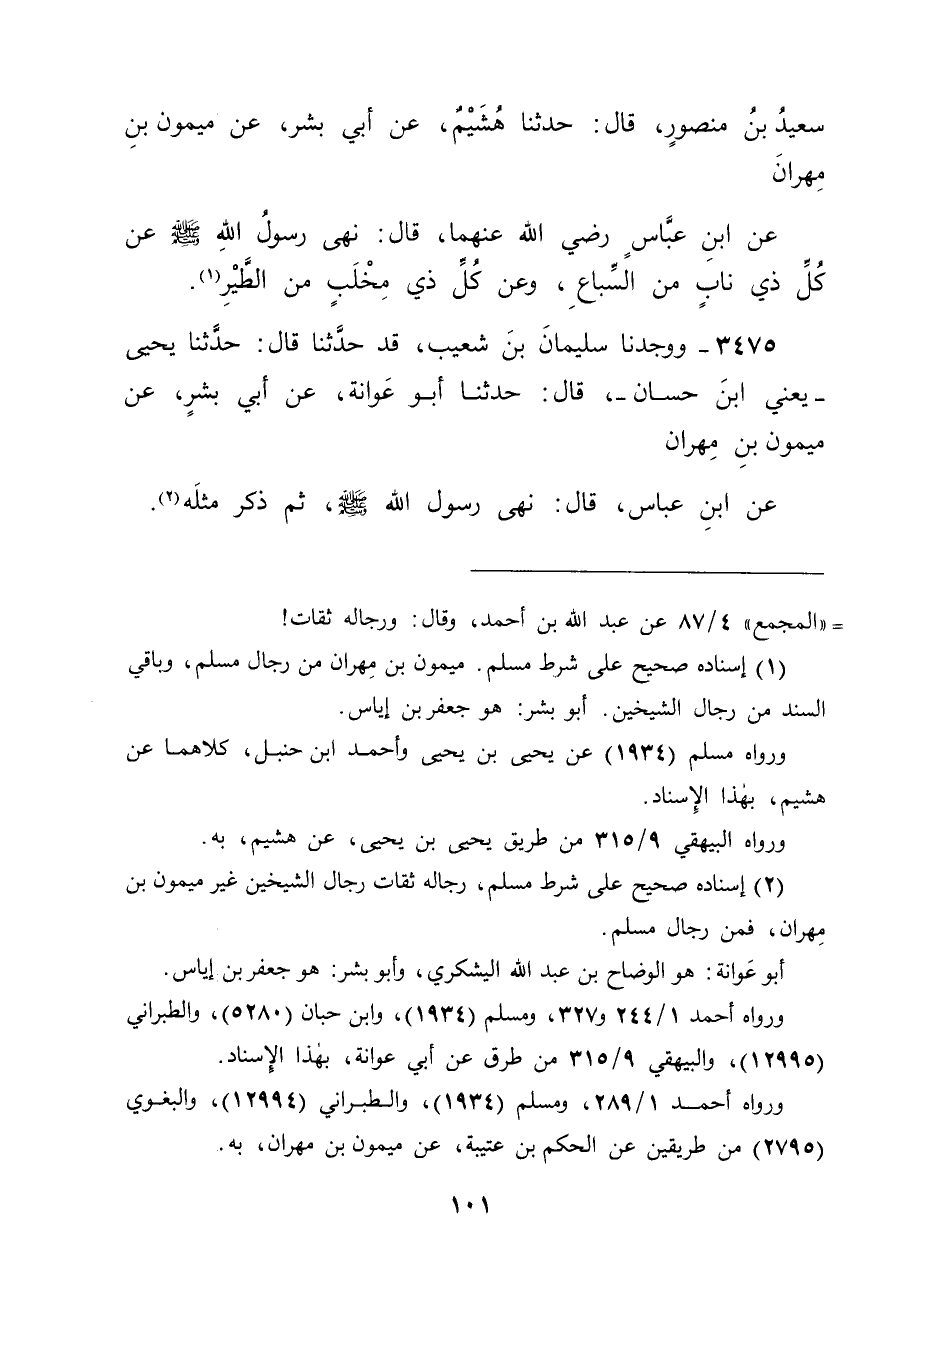 سعيدُ بنُ منصورٍ، قال: حدثنا هُشَيْمٌ، عن أبي بشر، عن ميمون بنِ
مِهرانَ
عن ابنِ عبَّاسٍ رضي الله عنهما، قال: نهى رسولُ اللهِ ﷺ عن
كُلِّ ذي نابٍ من السِّباعِ، وعن كُلِّ ذي مِخْلَبٍ من الطَّيْرِ(١).
٣٤٧٥ ـ ووجدنا سليمانَ بنَ شعيب، قد حدَّثنا قال: حدَّثنا يحيى
ـ يعني ابنَ حسان ـ، قال: حدثنا أبو عَوانة، عن أبي بشرٍ، عن
ميمون بنِ مِهران
عن ابنِ عباس، قال: نهى رسول الله ﷺ، ثم ذكر مثلَه(٢).
= «المجمع» ٨٧/٤ عن عبد الله بن أحمد، وقال: ورجاله ثقات!
(١) إسناده صحيح على شرط مسلم. ميمون بن مِهران من رجال مسلم، وباقي
السند من رجال الشيخين. أبو بشر: هو جعفر بن إياس.
ورواه مسلم (١٩٣٤) عن يحيى بن يحيى وأحمد ابن حنبل، كلاهما عن
هشيم، بهٰذا الإِسناد.
ورواه البيهقي ٣١٥/٩ من طريق يحيى بن يحيى، عن هشيم، به.
(٢) إسناده صحيح على شرط مسلم، رجاله ثقات رجال الشيخين غير ميمون بن
مِهران، فمن رجال مسلم.
أبو عَوانة: هو الوضاح بن عبد الله اليشكري، وأبو بشر: هو جعفر بن إياس.
ورواه أحمد ٢٤٤/١ و٣٢٧، ومسلم (١٩٣٤)، وابن حبان (٥٢٨٠)، والطبراني
(١٢٩٩٥)، والبيهقي ٣١٥/٩ من طرق عن أبي عوانة، بهٰذا الإِسناد.
ورواه أحمد ٢٨٩/١، ومسلم (١٩٣٤)، والطبراني (١٢٩٩٤)، والبغوي
(٢٧٩٥) من طريقين عن الحكم بن عتيبة، عن ميمون بن مهران، به.
١٠١